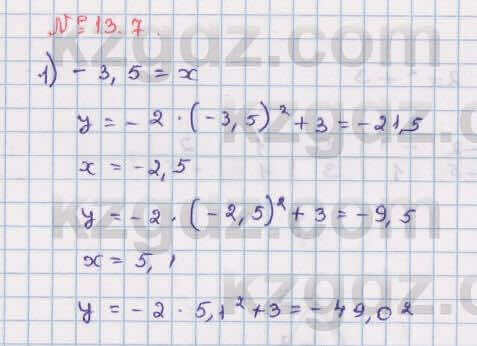 № 13.7.
1) - 3,5 = x
y = - 2 · (-3,5)² + 3 = -21,5
x = -2,5
y = -2 · (-2,5)² + 3 = -9,5
x = 5,1
y = -2 · 5,1² + 3 = -49,02
kzgdz.com
kzgdz.com
kzgdz.com